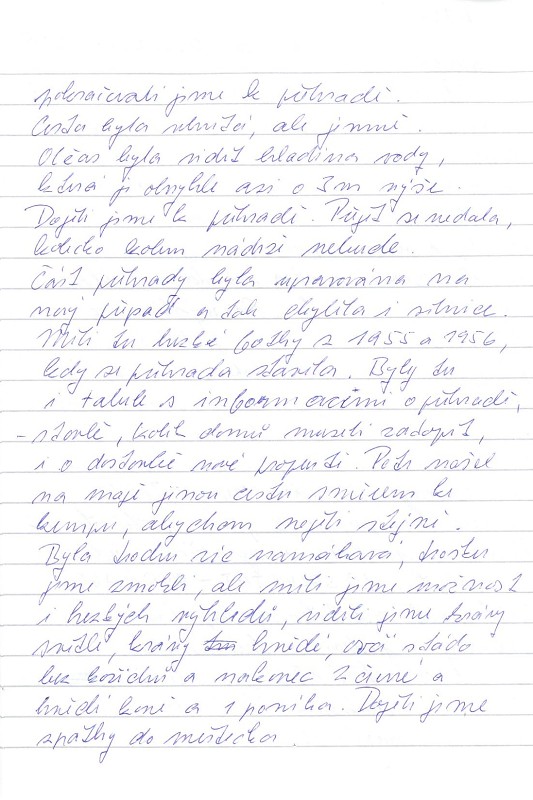 pokračovali jsme k přehradě.
Cesta byla rovná, ale jinak.
Občas byla vidět hladina vody,
která je obvykle asi o 3m výše.
Došli jsme k přehradě. Přejít se nedala,
kolečko kolem nádrže nebude.
Část přehrady byla upravována na
nový případ a tak chyběla i silnice.
Měli tu hezké fotky z 1955 a 1956,
kdy se přehrada stavěla. Byly tu
i tabule s informacemi o přehradě,
- stavbě, kolik domů museli zatopit,
i o dostavbě nové propusti. Petr našel
na mapě jinou cestu směrem ke
kempu, abychom nešli stejně.
Byla trochu více namáhavá, trošku
jsme zmokli, ale měli jsme možnost
i hezkých výhledů, viděli jsme krávy
světlé, krávy hnědé, ovčí stádo
bez kožichů a nakonec 2 černé a
hnědé koně a 1 poníka. Došli jsme
zpátky do městečka.